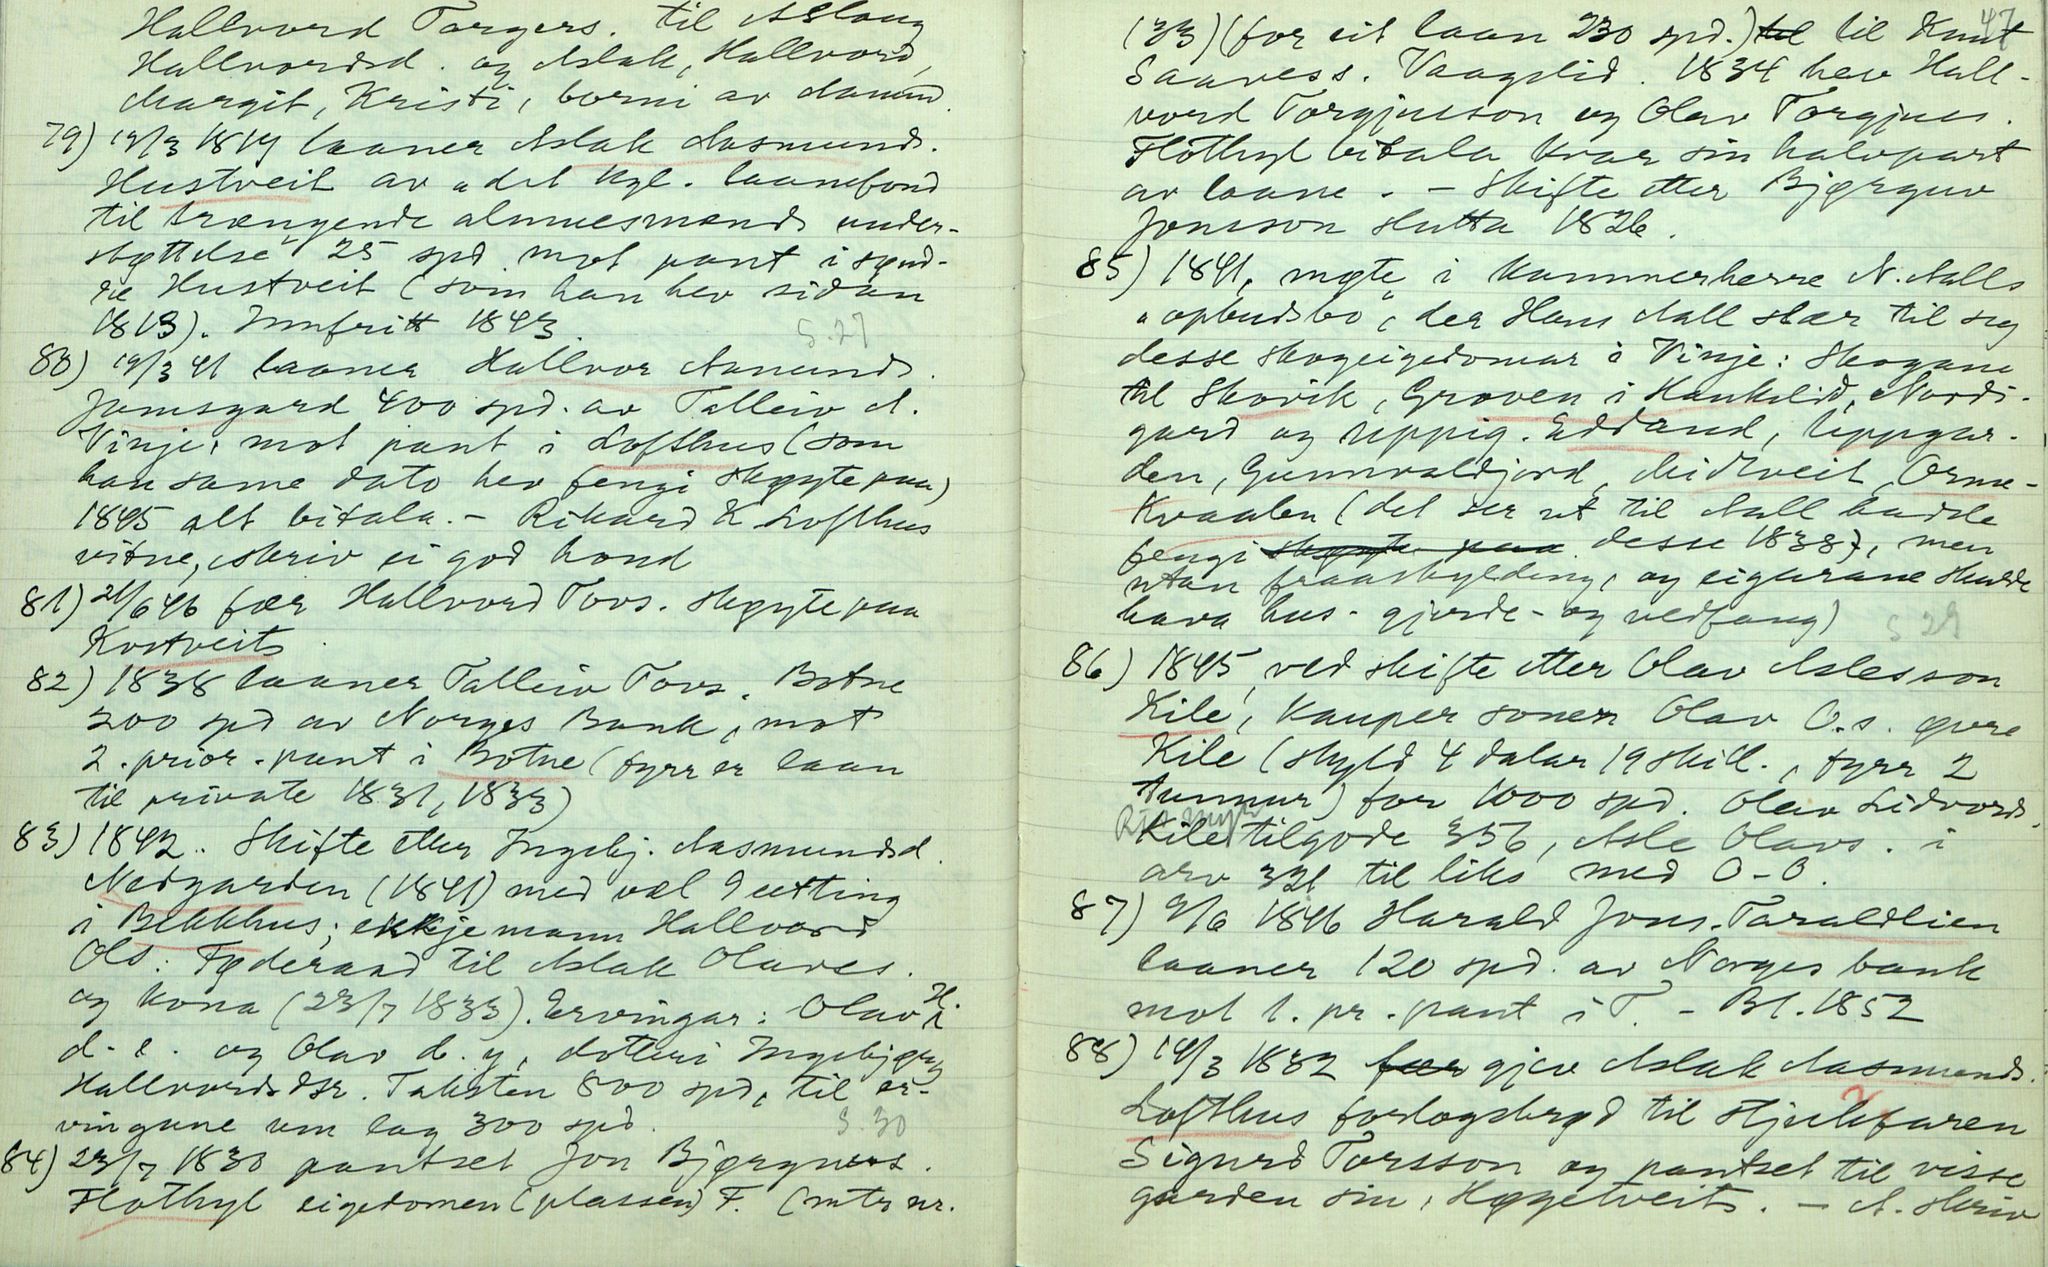 Hallvord Torgers. til Aslaug
Hallvordsd. og Aslak, Hallvord,
Margit, Kristi, borni av Amund.
79) 19/3 1819 laaner Aslak Aasmunds.
Hustveit av "det kgl. laanefond
til trængende almuesmænds under-
støttelse" 25 spd mot pant i sønd-
re Hustveit (som han hev sidan
1813). Innfritt 1843
S. 27
80) 19/3 41 laaner Hallvor Aanunds.
Jamsgard 400 spd. av Talleiv A.
Vinje, mot pant i Lofthus (som
han same dato hev fengi skøyte paa)
1845 alt bitala. – Rikard K Lofthus
vitne, skriv ei god hond
81) 26/6 46 fær Hallvord Tovs. skøyte paa
Kostveit
82) 1838 laaner Talleiv Tovs. Botne
200 spd av Norges Bank, mot
2. prior. pant i Botne (fyrr er laan
til private 1831, 1833)
83) 1842. Skifte etter Ingebj. Aasmundsd.
Nedgarden (1841) med væl 9 setting
i Bekkhus; ekkjemann Hallvord
Ols. Føderaad til Aslak Olavss.
og kona (23/7 1833). Ervingar: Olav H.
d. e. og Olav d. y, dotteri Ingebjørg
Hallvordsdtr. Taksten 800 spd, til er-
vingane um lag 300 spd.
S. 30
84) 23/7 1830 pantset Jon Bjørgues.
Flothyl eigedomen (plassen) F. (mtr nr.
47
133) (for eit laan 230 spd.) til til Knut
Saavess. Vaagslid. 1834 hev Hall-
vord Torgjusson og Olav Torgjuss.
Flothyl bitala kvar sin halvpart
av laane. – Skifte etter Bjørguv
Jonsson Hutta 1826.
85) 1841, møte i kammerherre N. Aalls
"opbudsbo", der Hans Aall slær til seg
desse skogeigedomar i Vinje: Skogane
til Skovik, Groven i Haukelid, Nordi-
gard og uppig. Edland, Uppgar-
den, Gunnvaldjord, Midtveit, Orme-
Kvaalen (det ser ut til Aall hadde
fengi skøyte paa desse 1838), men
utan fraaskylding, og eigarane skulde
hava hus- gjerde- og vedfang)
S 29
86) 1845, ved skifte etter Olav Aslesson
Kile, kauper sonen Olav O.s. øvre
Kile (skyld 4 dalar 19 skill., fyrr 2
tunnur) for 1000 spd. Olav Lidvords.
Kile tilgode 356, Asle Olavs. i
arv 321 til liks med O-O.
87) 9/6 1846 Harald Jons. Taraldlien
laaner 120 spd. av Norges bank
mot 1. pr. pant i T. – Bt. 1852
88) 19/3 1832 fær gjev Aslak Aasmunds.
Lofthus forlogsbrød til Hjulefaren
Sigurd Torsson og pantset til visse
garden sin, Høgetveit. – A. skriv